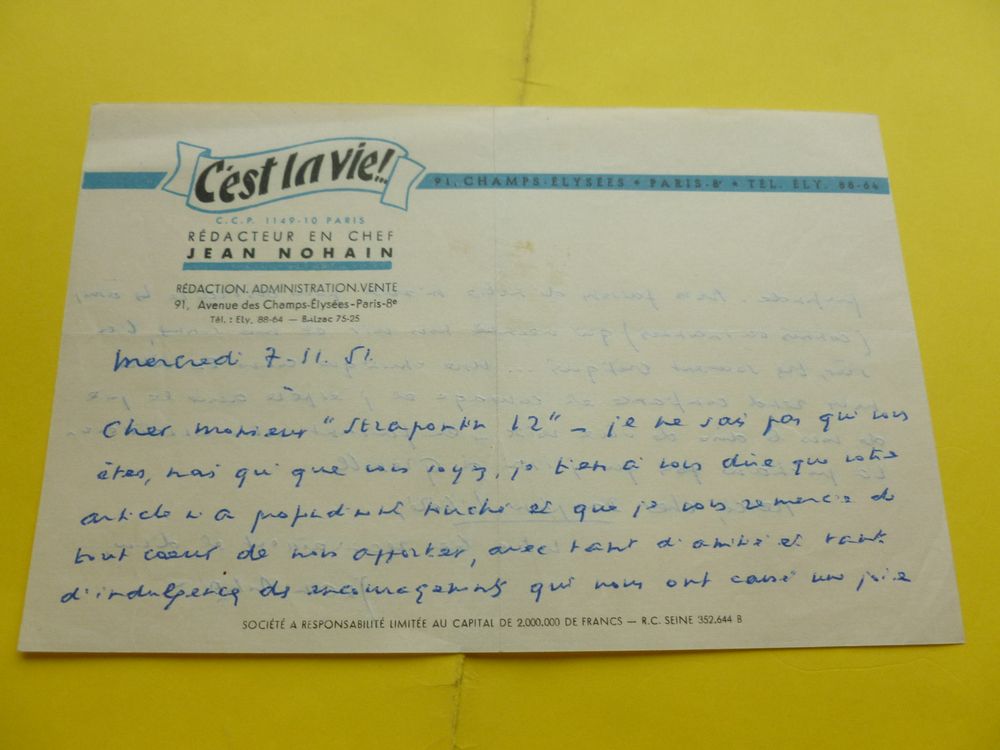 C'est la vie!...
91, CHAMPS-ÉLYSÉES • PARIS-8e • TÉL. ÉLY. 88-64
C.C.P. 1149-10 PARIS
RÉDACTEUR EN CHEF
JEAN NOHAIN
RÉDACTION. ADMINISTRATION. VENTE
91, Avenue des Champs-Élysées-Paris-8e
Tél. : Ely. 88-64 — Balzac 75-25
Mercredi 7-11.51.
Cher Monsieur "Strapontin 12" – je ne sais pas qui vous
êtes, mais qui que vous soyez, je tiens à vous dire que votre
article m'a profondément touché et que je vous remercie de
tout cœur de nous apporter, avec tant d'amitié et tant
d'indulgence des encouragements qui nous ont causé une joie
SOCIÉTÉ A RESPONSABILITÉ LIMITÉE AU CAPITAL DE 2.000.000 DE FRANCS — R.C. SEINE 352.644 B